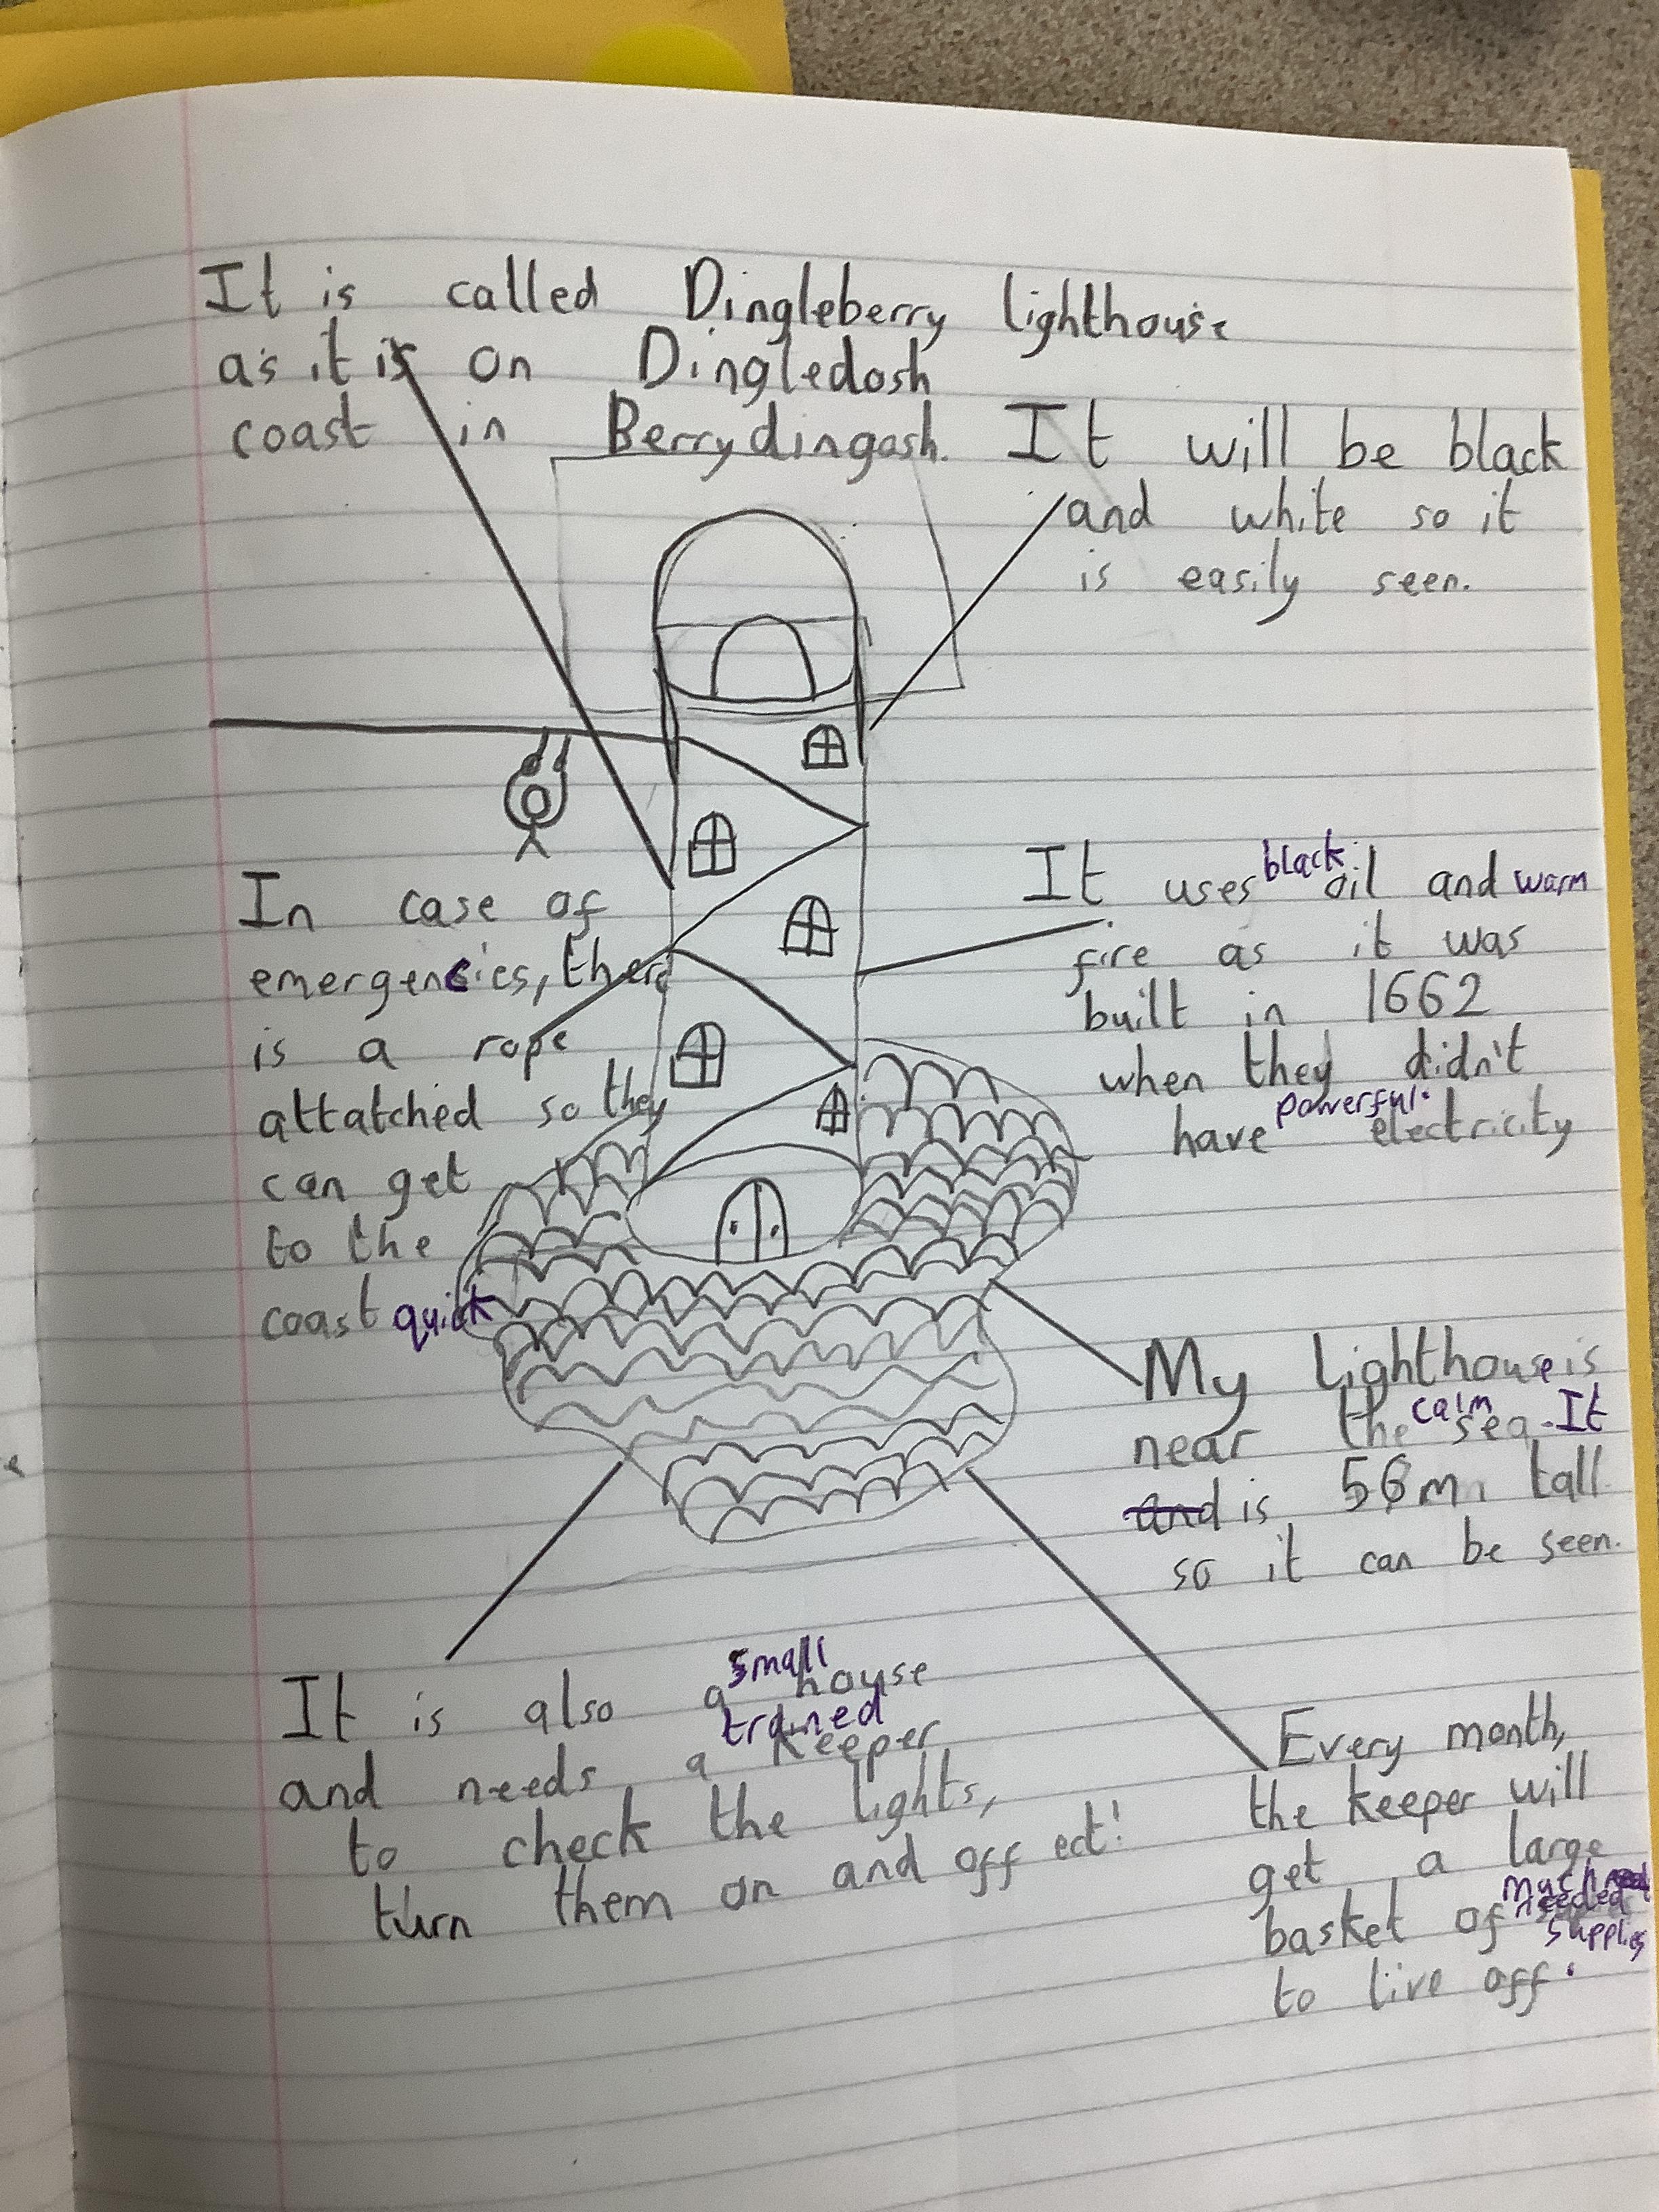 It is called Dingleberry lighthouse
as it is on Dingledosh
coast in Berrydingosh.
It will be black
and white so it
is easily seen.
In case of
emergencies, there
is a rope
attatched so they
can get
to the
coast quick
It uses black oil and warm
fire as it was
built in 1662
when they didn't
have powerful electricity
My lighthouse is
near the calm sea. It
and is 56m tall
so it can be seen.
It is also a small house
and needs a trained keeper
to check the lights,
turn them on and off ect!
Every month,
the keeper will
get a large
basket of much needed
supplies
to live off.